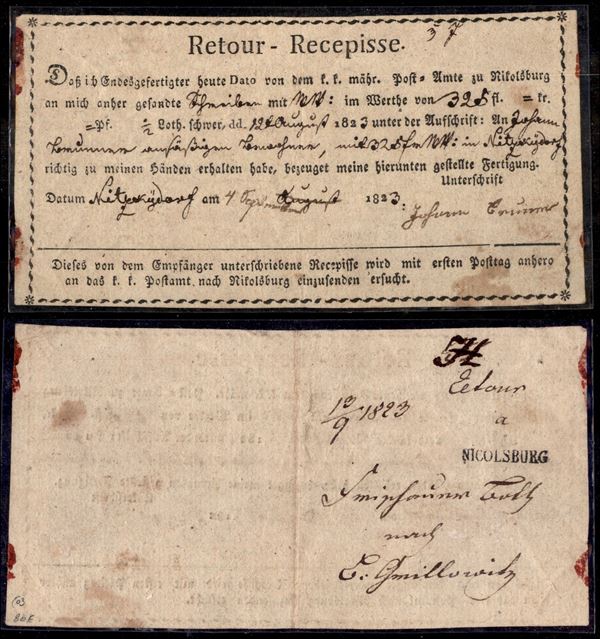 37
Retour - Recepisse.
Daß ich Endesgefertigter heute Dato von dem k. k. mähr. Post-Amte zu Nikolsburg
an mich anher gesandte Schreiben mit WW: im Werthe von 325 fl. = kr.
=Pf. ½ Loth. schwer, dd. 12t August 1823 unter der Aufschrift: An Johann
Brunner ansäßigen Bewohner, mit 325 f WW: in Nitzkydorf
richtig zu meinen Händen erhalten habe, bezeuget meine hierunten gestellte Fertigung.
Unterschrift
Datum Nitzkydorf am 4 September August 1823:
Johann Brunner
Dieses von dem Empfänger unterschriebene Recepisse wird mit ersten Posttag anhero
an das k. k. Postamt nach Nikolsburg einzusenden ersucht.
54
Retour
13/9 1823
a
NICOLSBURG
nach